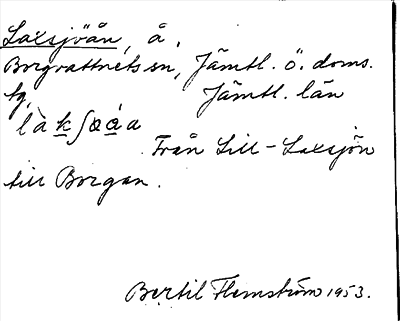 Laxsjöån, å.
Borgvattnets sn, Jämtl. ö. doms.
tg, Jämtl. län
Från Lill-Laxsjön
till Borgan.
Bertil Flemström 1953.